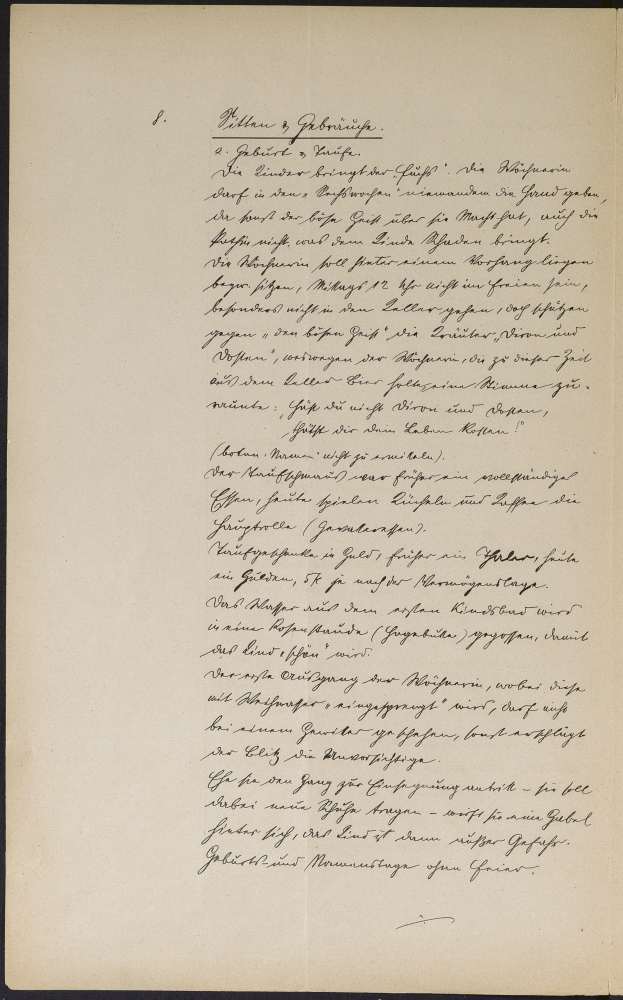 8. Sitten & Gebräuche.
a. Geburt & Taufe.
Die Kinder bringt der „Fuchs“. Die Wöchnerin
darf in den „Sechswochen“ niemandem die Hand geben,
da sonst der böse Geist über sie Macht hat, auch die
Pathin nicht, was dem Kinde Schaden bringt.
Die Wöchnerin soll hinter einem Vorhang liegen
bezw. sitzen, Mittags 12 Uhr nicht im Freien sein,
besonders nicht in den Keller gehen, doch schützen
gegen „den bösen Geist“ die Kräuter „Diron und
Dosten“, weswegen der Wöchnerin, die zu dieser Zeit
aus dem Keller Bier holte, eine Stimme zu-
raunte: „Häst du nicht Diron und Dosten,
thätst dir dein Leben kosten!“
(botan. Namen nicht zu ermitteln).
Der Taufschmaus war früher ein vollständiges
Essen, heute spielen Kücheln und Kaffee die
Hauptrolle (Gevatteressen).
Taufgeschenke in Geld, früher ein Thaler, heute
ein Gulden, 5 M je nach der Vermögenslage.
Das Wasser aus dem ersten Kindsbad wird
in eine Rosenstaude (Hagebutte) gegossen, damit
das Kind „schön“ wird.
Der erste Ausgang der Wöchnerin, wobei diese
mit Weihwasser „eingesprengt“ wird, darf nicht
bei einem Gewitter geschehen, sonst erschlägt
der Blitz die Unvorsichtige.
Ehe sie den Gang zur Einsegnung antritt – sie soll
dabei neue Schuhe tragen – wirft sie eine Gabel
hinter sich, das Kind ist dann außer Gefahr.
Geburts- und Namenstage ohne Feier.